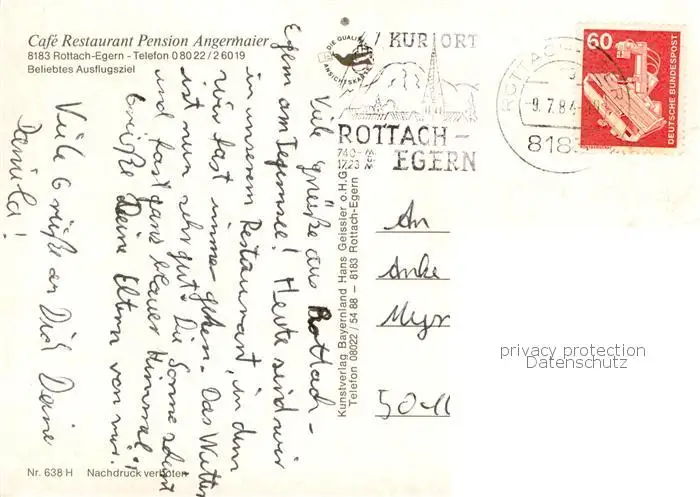 Café Restaurant Pension Angermaier
8183 Rottach-Egern - Telefon 0 80 22 / 2 60 19
Beliebtes Ausflugsziel
DIE QUALITÄTS
ANSICHTSKARTE
KURORT
ROTTACH-
EGERN
ROTTACH-EGERN
-9.7.84
818
60
DEUTSCHE BUNDESPOST
Viele grüße aus Rottach-
Egern am Tegernsee! Heute sind wir
in unserem Restaurant, in dem
wir fast immer gehen. Das Wetter
ist nun sehr gut. Die Sonne scheint
und fast ganz blauer Himmel!
Grüße Deine Eltern von mir.
Viele Grüße an Dich Deine
Daniela!
Kunstverlag Bayernland Hans Geissler o.H.G.
Telefon 08022 / 54 88 – 8183 Rottach-Egern
An
Anke
privacy protection
Datenschutz
Nr. 638 H Nachdruck verboten